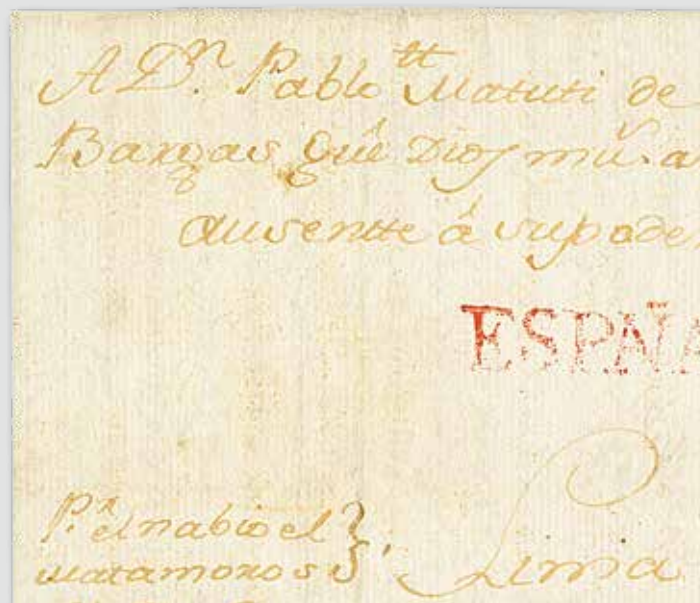 A Dn. Pablo tt Matuti de
Bargas qûe Dios mũ. a
ausentte â supode
ESPAÑA
Pr. el nabio el
Matamoros
Lima